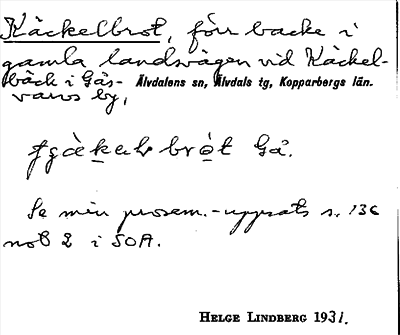 Käckelbrot, förr backe i
gamla landsvägen vid Käckel-
bäck i Gås- Älvdalens sn, Älvdals tg, Kopparbergs län.
varvs by,
Gå.
Se min prosem.-uppsats s. 136
not 2 i SOA.
HELGE LINDBERG 1931.